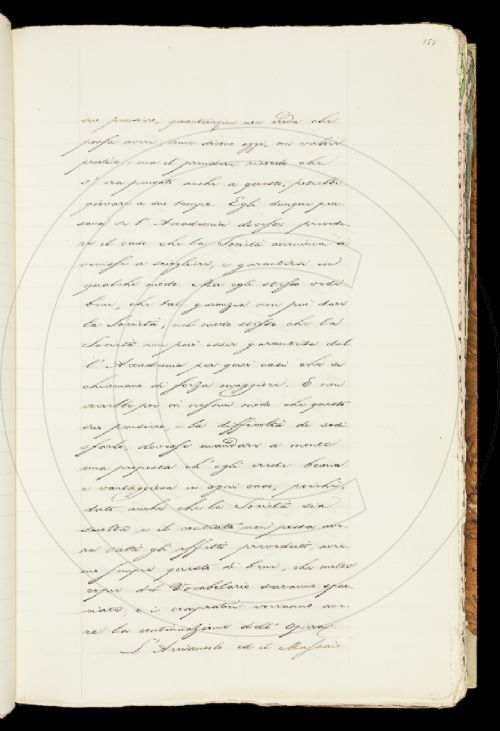 151
suo pensiero, quantunque non creda che
possa avere, come dicono oggi, un valore
pratico; ma il prendere ricordo che
s'era pensato anche a questo, potrebbe
giovare a suo tempo. Egli dunque pen
sava se l'Accademia dovesse prevede
re il caso che la Società anonima a
venisse a sciogliersi, e garantirsi in
qualche modo. Ma egli stesso vede
bene, che tal garanzia non può dare
la Società, nel modo stesso che la
Società non può esser garantita dal
l'Accademia per quei casi che si
chiamano di forza maggiore. E non
vorrebbe poi in nessun modo che questo
suo pensiero, e la difficoltà di sodi
sfarlo, dovesse mandare a monte
una proposta ch'egli crede buona
e vantaggiosa in ogni caso; perché,
dato anche che la Società sia
sciolta e il contratto non possa ave
re tutti gli effetti preveduti, avre
mo sempre questo di bene, che molte
copie del Vocabolario saranno spac
ciate, e i compratori vorranno ave
re la continuazione dell'Opera.
L'Arciconsolo ed il